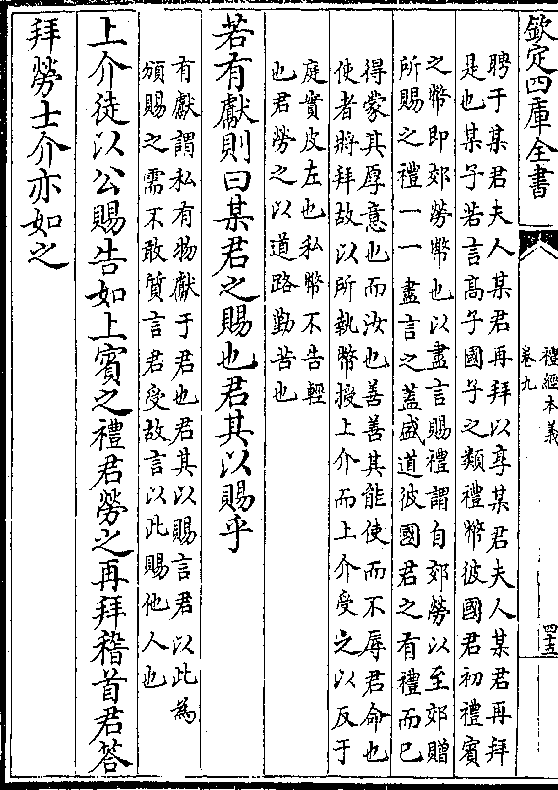 欽定四庫全書
禮經本義
卷九
四十五
聘于某君夫人某君再拜以享某君夫人某君再拜
是也某子若言高子國子之類禮幣彼國君初禮賓
之幣即郊勞幣也以盡言賜禮謂自郊勞以至郊贈
所賜之禮一一盡言之蓋盛道彼國君之有禮而已
得蒙其厚意也而汝也善善其能使而不辱君命也
使者將拜故以所執幣授上介而上介受之以反于
庭實皮左也私幣不告輕
也君勞之以道路勤苦也
若有獻則曰某君之賜也君其以賜乎
有獻謂私有物獻于君也君其以賜言君以此為
頒賜之需不敢質言君受故言以此賜他人也
上介徒以公賜告如上賓之禮君勞之再拜稽首君答
拜勞士介亦如之